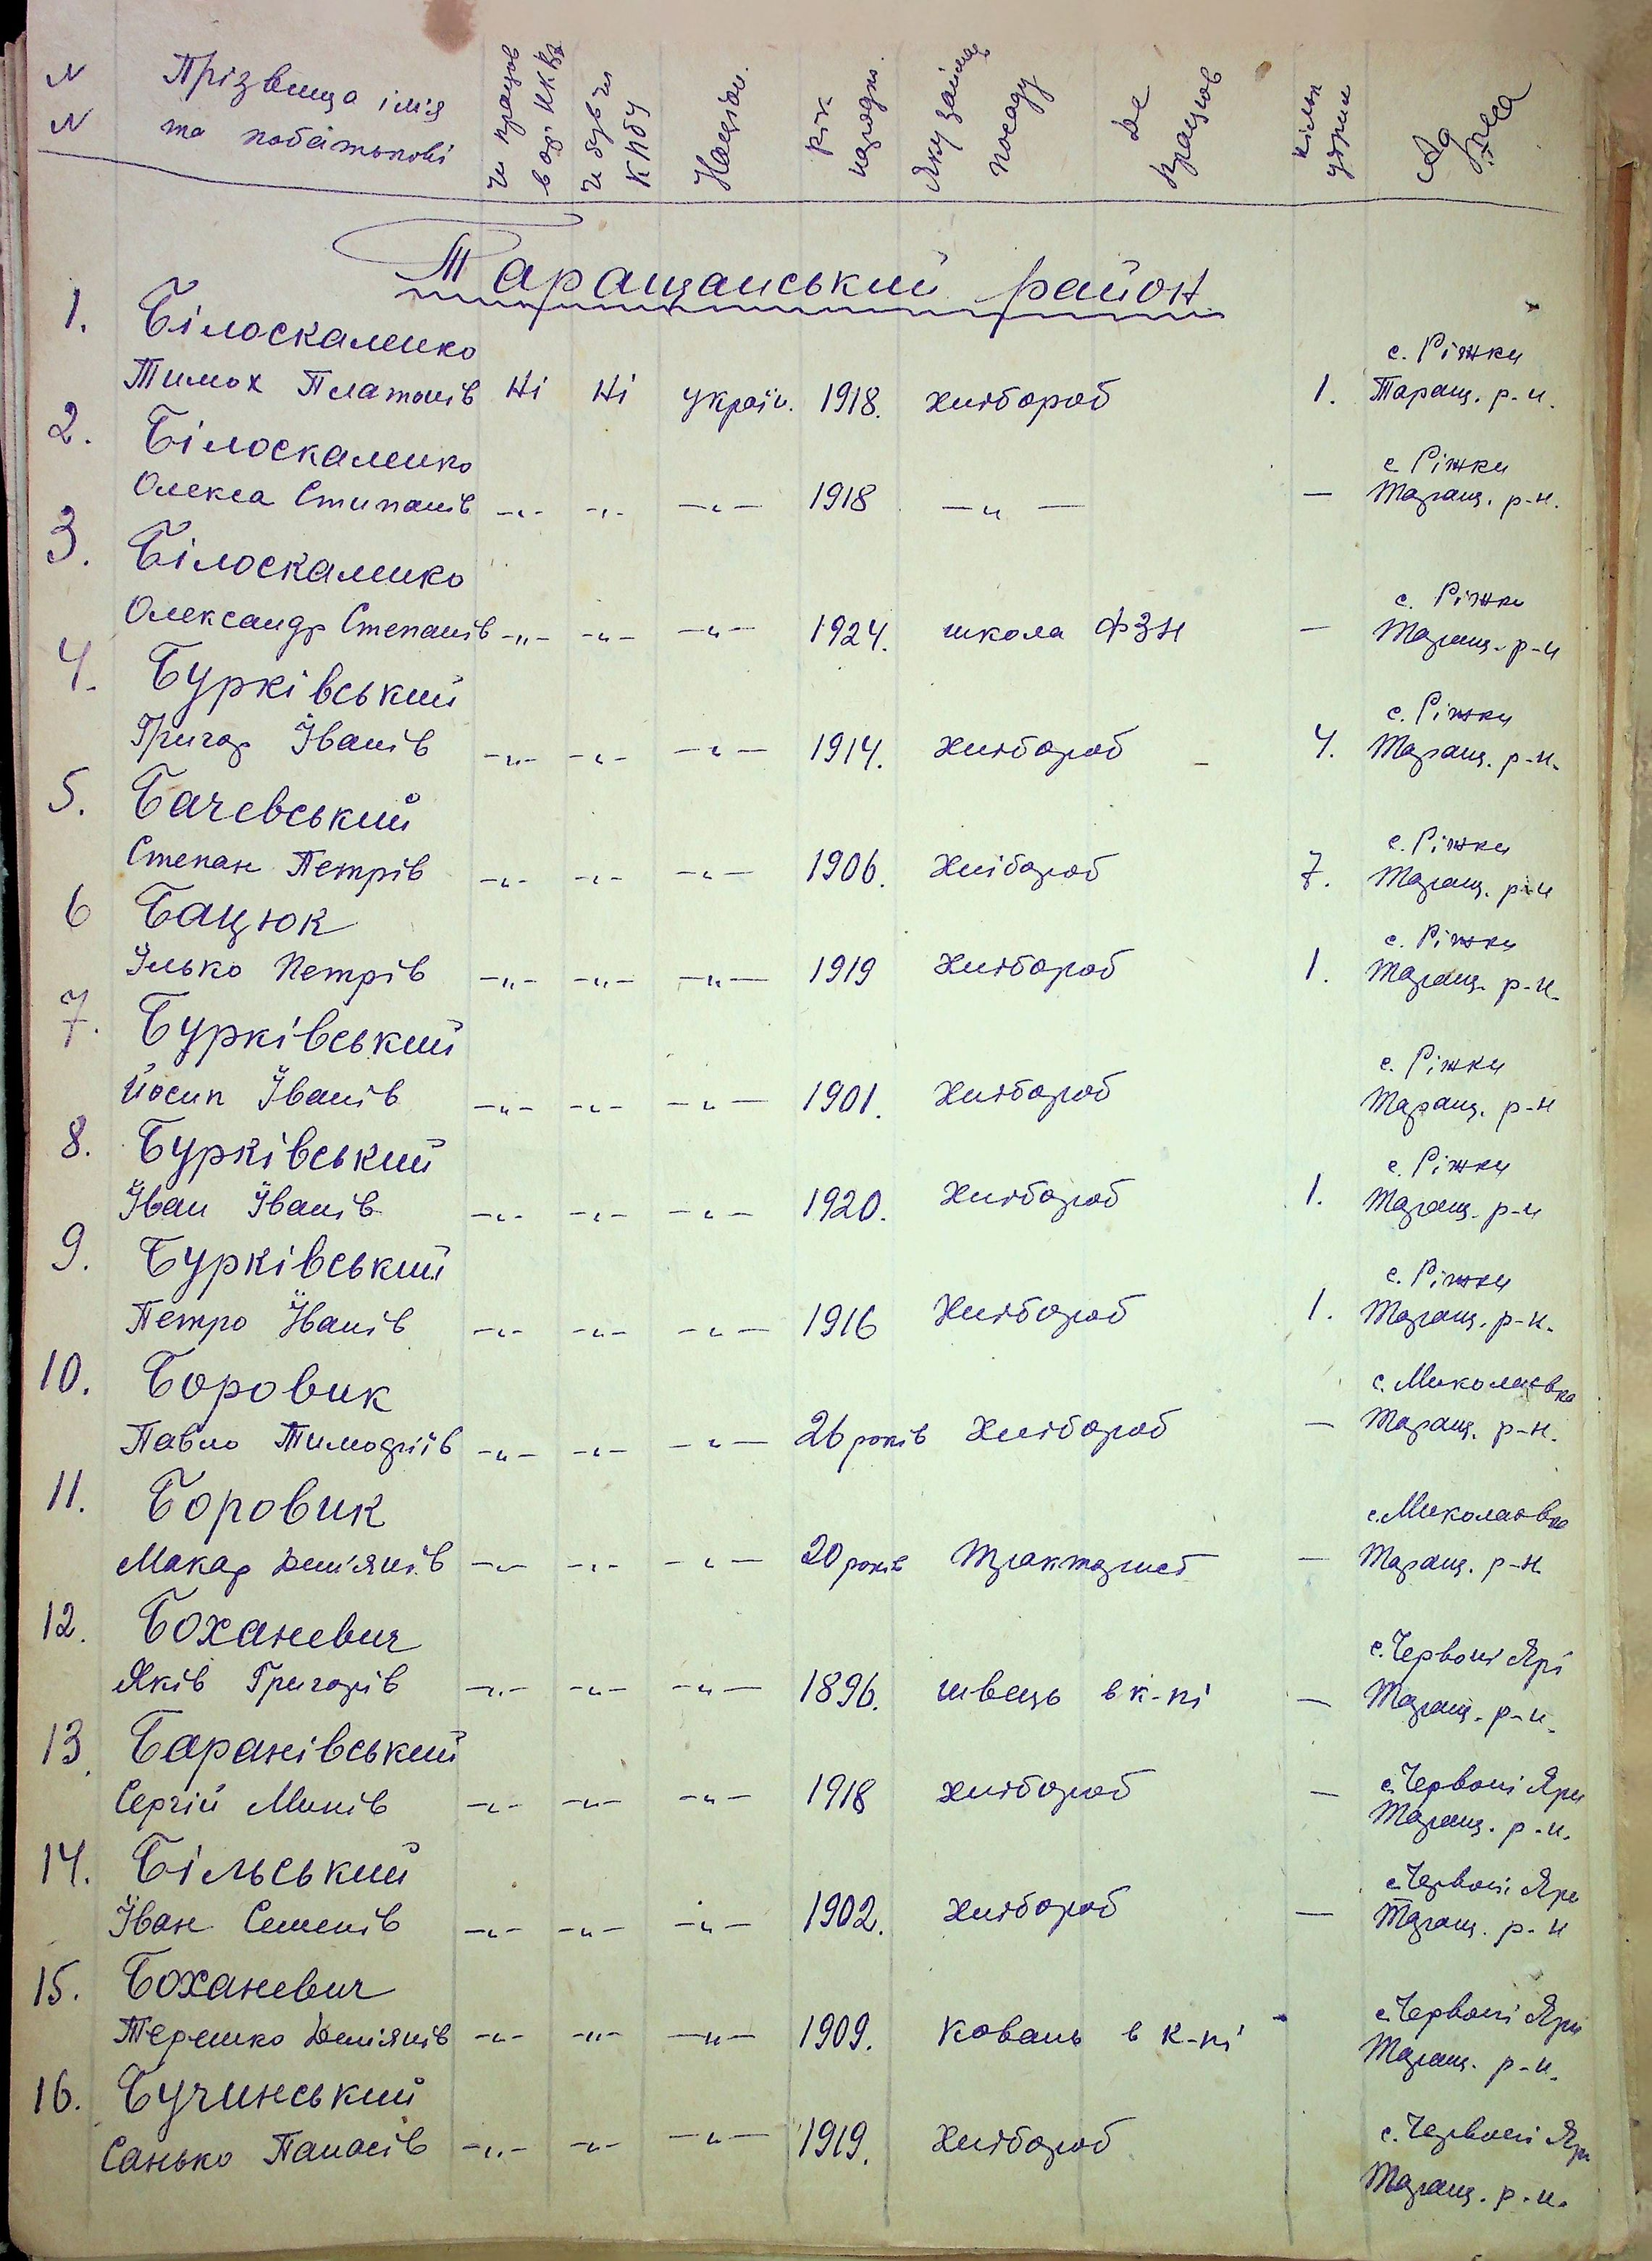 N Прізвища імя чи працюв чи був чл Націон. Рік Яку займав Де кільк Адреса
N та побатькові в орг НКВД КПбУ народж. посаду працюв утрим
Таращанський район
1. Білоскаленко с. Ріжки
Тимох Платонів Ні Ні україн. 1918. хлібороб 1. Таращ. р-н.
2. Білоскаленко с Ріжки
Олекса Стипанів -"- -"- -"- 1918 -"- - Таращ. р-н.
3. Білоскаленко с. Ріжки
Олександр Степанів -"- -"- -"- 1924. школа ФЗН - Таращ. р-н
4. Бурківський с. Ріжки
Григор Іванів -"- -"- -"- 1914. хлібороб 4. Таращ. р-н.
5. Бачевський с. Ріжки
Степан Петрів -"- -"- -"- 1906. хлібороб 7. Таращ. р-н
6 Бацюк с. Ріжки
Ілько Петрів -"- -"- -"- 1919 хлібороб 1. Таращ. р-н.
7. Бурківський с. Ріжки
Йосип Іванів -"- -"- -"- 1901. хлібороб Таращ. р-н
8. Бурківський с. Ріжки
Іван Іванів -"- -"- -"- 1920. хлібороб 1. Таращ. р-н
9. Бурківський с. Ріжки
Петро Іванів -"- -"- -"- 1916 хлібороб 1. Таращ. р-н.
10. Боровик с. Миколаєвка
Павло Тимофіїв -"- -"- -"- 26 років хлібороб - Таращ. р-н.
11. Боровик с. Миколаєвка
Макар Дем'янів -"- -"- -"- 20 років тракторист - Таращ. р-н.
12. Боханевич с. Червоні Ярі
Яків Григорів -"- -"- -"- 1896. швець в к-пі - Таращ. р-н.
13. Баранівський с. Червоні Яри
Сергій Минів -"- -"- -"- 1918 хлібороб - Таращ. р-н.
14. Більський с. Червоні Яри
Іван Семенів -"- -"- -"- 1902. хлібороб - Таращ. р-н
15. Боханевич с. Червоні Яри
Терешко Демянів -"- -"- -"- 1909. коваль в к-пі Таращ. р-н.
16. Бучинський с. Червоні Яри
Санько Панасів -"- -"- -"- 1919. хлібороб Таращ. р-н.